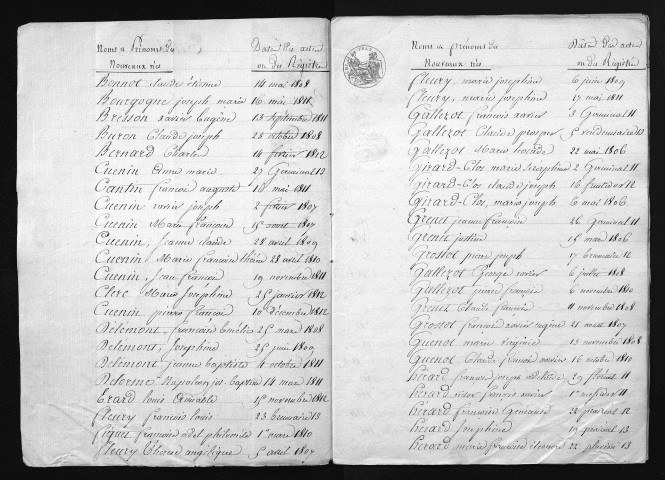 Noms & Prénoms des Date des actes
Nouveaux nés ou des Registres
Bonnot claude étienne 14 mai 1808
Bourgogne joseph marie 16 mai 1811
Bresson xavier Eugène 13 septembre 1811
Buron Claude joseph 28 octobre 1808
Bernard Charles 14 fevrier 1812
Cuenin Anne marie 27 Germinal 12
Cantin francois auguste 18 mai 1811
Cuenin xavier joseph 2 fevrier 1807
Cuenin Marie françoise 15 aout 1807
Cuenin, jeanne claude 28 avril 1809
Cuenin Marie françoise Thérèse 28 avril 1810
Cuenin, jean françois 19 novembre 1811
Clerc Marie Joséphine 25 janvier 1812
Cuenin pierre françois 10 décembre 1812
Delémont, françois 25 mars 1808
Delémont, Joséphine 25 juin 1809
Delémont jeanne baptiste 4 octobre 1811
Delorme Napoléon jos. baptiste 14 mars 1811
Erard louis Aimable 15 novembre 1812
Fleury françois louis 23 brumaire 13
françois adel philomele 1er mars 1810
Fleury Thérèse angélique 5 avril 1807
Noms & prénoms des Date des actes
Nouveaux nés ou des Registres
Fleury, marie joséphine 6 juin 1809
Fleury, marie joséphine 17 mai 1811
Gallezot françois xavier 3 Germinal 11
Gallezot Claude prosper 5 vendemiaire 13
Gallezot Marie 22 mai 1806
Girard-Clos marie Séraphine 2 Germinal 11
Girard-Clos claude joseph 16 fructidor 12
Girard-Clos, marie joseph 6 mai 1806
Grenet jeanne françoise 26 Germinal 11
justine 15 mars 1806
Grosset pierre joseph 17 brumaire 12
Gallezot xavier 6 juillet 1808
Gallezot pierre françois 6 novembre 1810
Grenet Claude françois 11 novembre 1808
Grosset françois xavier eugène 21 aout 1807
Guenot marie virginie 13 novembre 1808
Guenot Claude françois xavier 16 octobre 1810
Hérard françois joseph 29 floréal 11
hérard victor françois xavier 1er messidor 11
hérard françoise 28 prairial 12
hérard Joséphine 19 prairial 13
hérard marie françoise éléonore 22 pluviôse 13